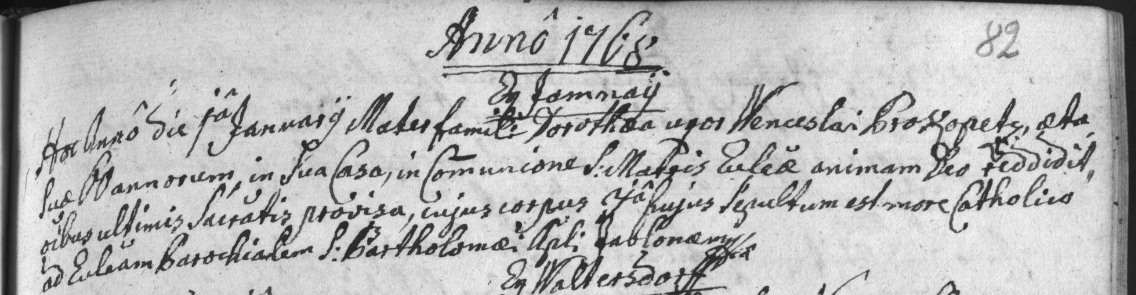 Annô 1768
82
Ex Jamnaÿ
Hoc Annô die 5tâ Januarÿ Mater familiæ Dorothæa uxor Wenceslai Proskopetz, æta
suæ annorum, in Sua Casa, in Comunione S: Matris Eulêæ animam Deo reddidit,
oïbus ultimis Sacratis provisa, cujus corpus 7â hujus sepultum est more Catholico
ad Eulêam Parochialem S: Bartholomæi Apli Jablonæ
Ex Waltersdorff